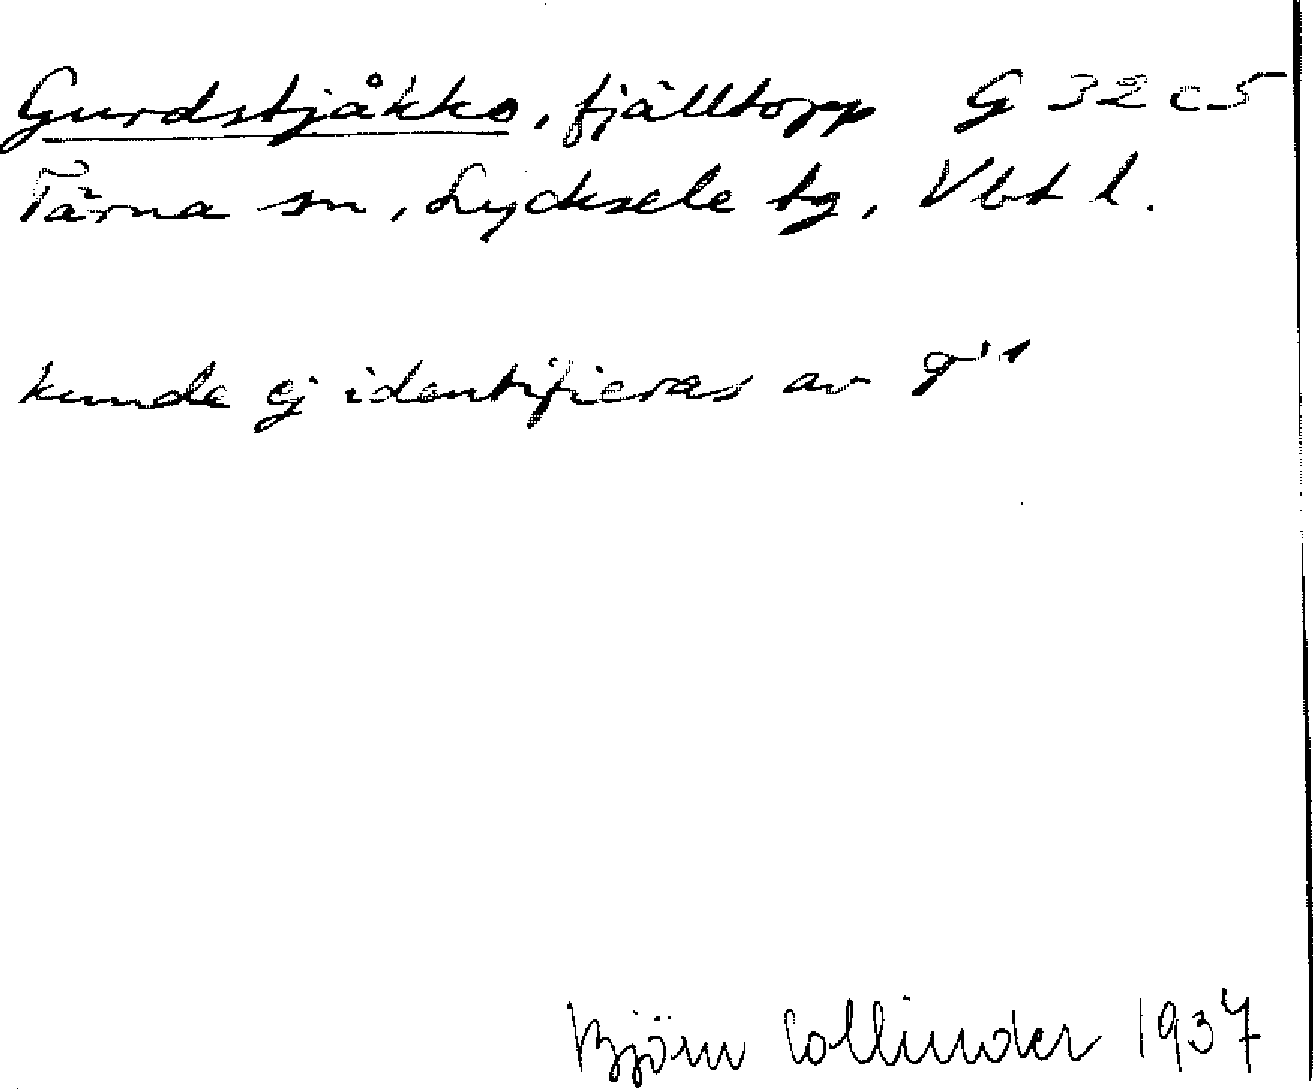 Gurdstjåkko, fjälltopp G 32 c 5
Tärna sn, Lycksele tg, Vbt l.
kunde ej identifieras av
Björn Collinder 1937